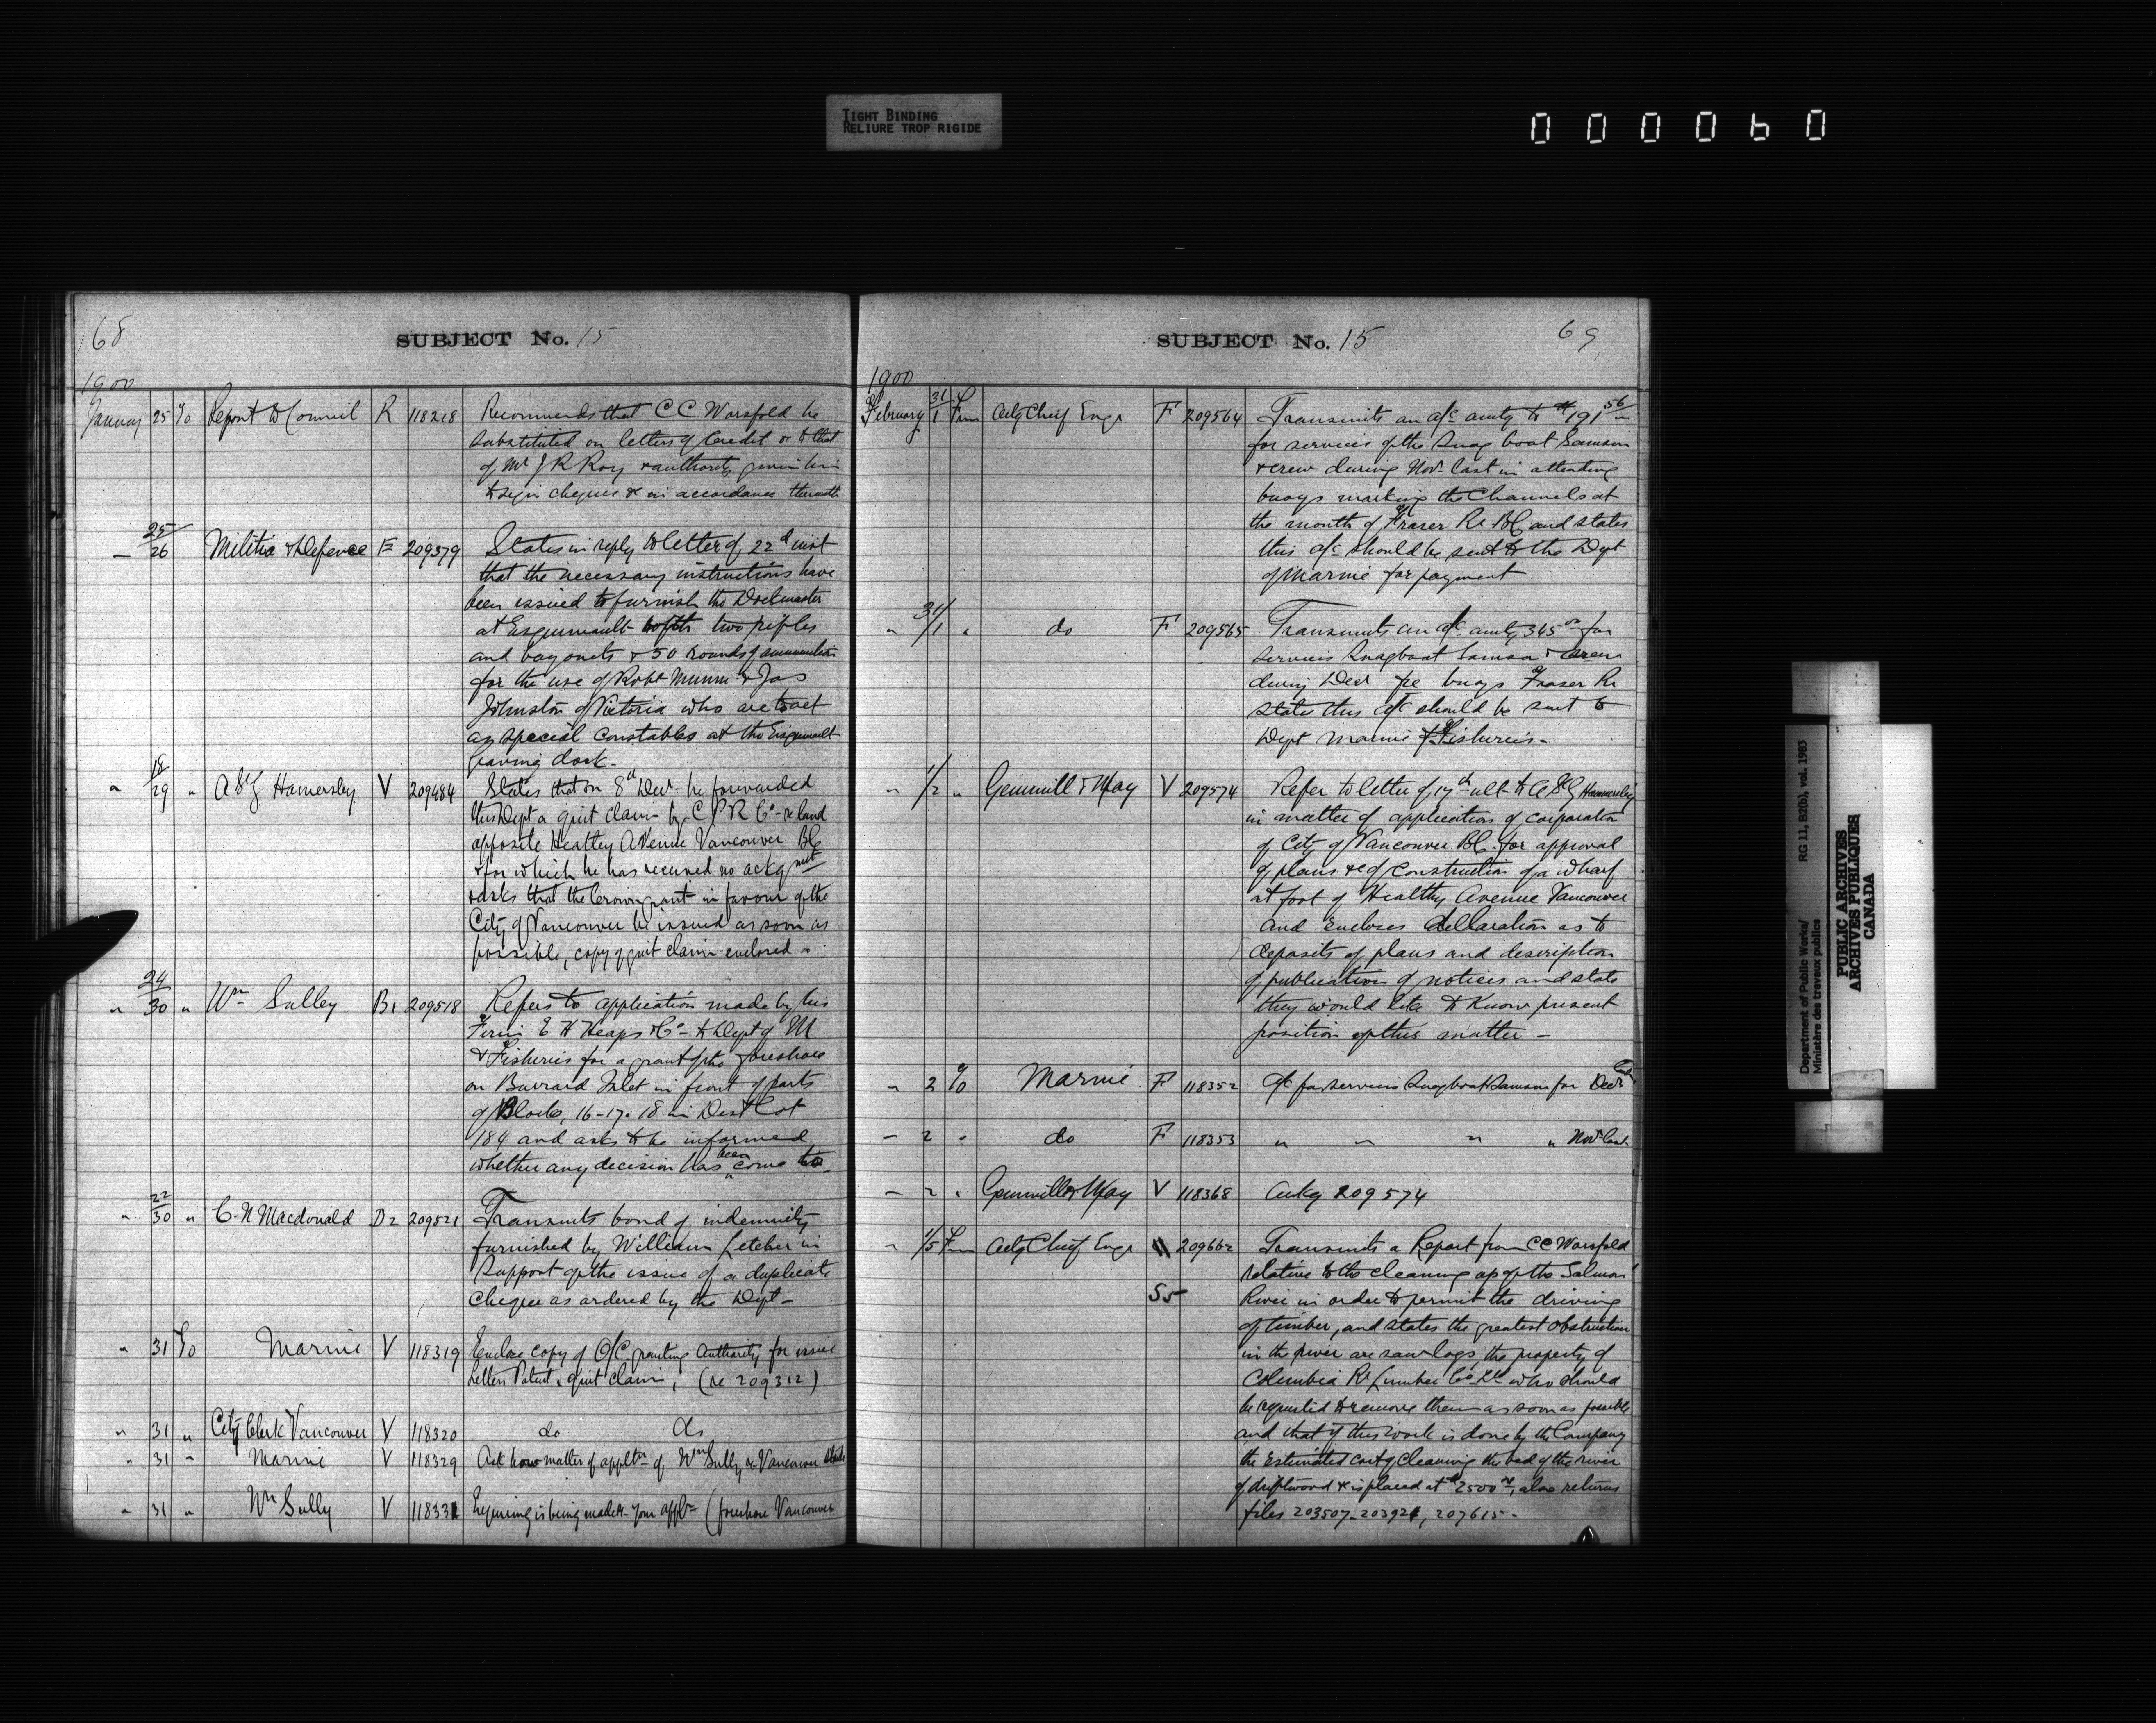 TIGHT BINDING
RELIURE TROP RIGIDE
000060
68
SUBJECT No. 15
1900
January 25 To Report to Council R 118218 Recommends that C C Worsfold be
substituted on letters of Credit to that
of Mr J R Roy & authority given him
to sign cheques & in accordance therewith
" 25/26 Militia & Defence E 209379 States in reply to letter of 22d inst
that the necessary instructions have
been issued to furnish the Dockmaster
at Esquimault with two rifles
and bayonets & 50 rounds of ammunition
for the use of Robt Munn & Jas
Johnston of Victoria who are to act
as special constables at the Esquimault
graving dock.
" 18/29 " A St G Hamersley V 209484 States that on 8th Decr he forwarded
this Dept a quit claim by C P R Co - re land
opposite Heatley Avenue Vancouver BC
& for which he has received no ackgmt
& asks that the Crown grant in favour of the
City of Vancouver be issued as soon as
possible, copy of quit claim enclosed -
" 24/30 " Wm Sulley B1 209518 Refers to application made by his
Firm E H Heaps & Co - to Dept of M
& Fisheries for a grant of the foreshore
on Burrard Inlet in front of parts
of Blocks, 16-17. 18 in Dist Lot
184 and asks to be informed
whether any decision has been come to
" 22/30 " C. N Macdonald D2 209521 Transmits bond of indemnity
furnished by William Letcher in
support of the issue of a duplicate
cheque as ordered by the Dept -
" 31 To Marine V 118319 Enclose copy of O/C granting authority for issue
Letters Patent, quit claim, (re 209312)
" 31 " City Clerk Vancouver V 118320 do do
" 31 " Marine V 118329 Ask how matter of appltn of Wm Sully re Vancouver
" 31 " Wm Sully V 118331 Enquiring is being made re your appln (foreshore Vancouver
SUBJECT No. 15
69
1900
February 31/1 From Actg Chief Engr F 209564 Transmits an a/c amtg to $191 56
for services of the Snag boat Samson
& crew during Novr last in attending
buoys marking the Channels at
the mouth of Fraser Rr BC and states
this a/c should be sent to the Dept
of Marine for payment
" 31/1 " do F 209565 Transmits an a/c amtg 345 00 for
services Snagboat Samson & crew
during Decr re buoys Fraser Rr
states this a/c should be sent to
Dept Marine & Fisheries -
" 1/2 " Gemmill & May V 209574 Refer to letter of 17th ult to A St G Hamersley
in matter of application of corporation
of City of Vancouver BC. for approval
of plans & of construction of a wharf
at foot of Heathy Avenue Vancouver
and encloses declaration as to
deposits of plans and description
of publication of notices and state
they would like to know present
position of this matter -
" 2 To Marine F 118352 a/c for services Snagboat Samson for Decr
" 2 " do F 118353 " " " " Novr last
" 2 " Gemmill & May V 118368 Ackg 209574
" 1/5 From Actg Chief Engr 209662 Transmits a Report from C C Worsfold
relative to the cleaning up of the Salmon
S5 River in order to permit the driving
of timber, and states the greatest obstruction
in the river are saw logs, the property of
Columbia Rr Lumber Co Ltd who should
be requested to remove them as soon as possible
and that if this work is done by the Company
the estimated cost of cleaning the bed of the river
of driftwood & is placed at $2500 00, also returns
files 203507. 203921, 207615 -
Department of Public Works/
Ministère des travaux publics
RG 11, B2(b), vol. 1983
PUBLIC ARCHIVES
ARCHIVES PUBLIQUES
CANADA